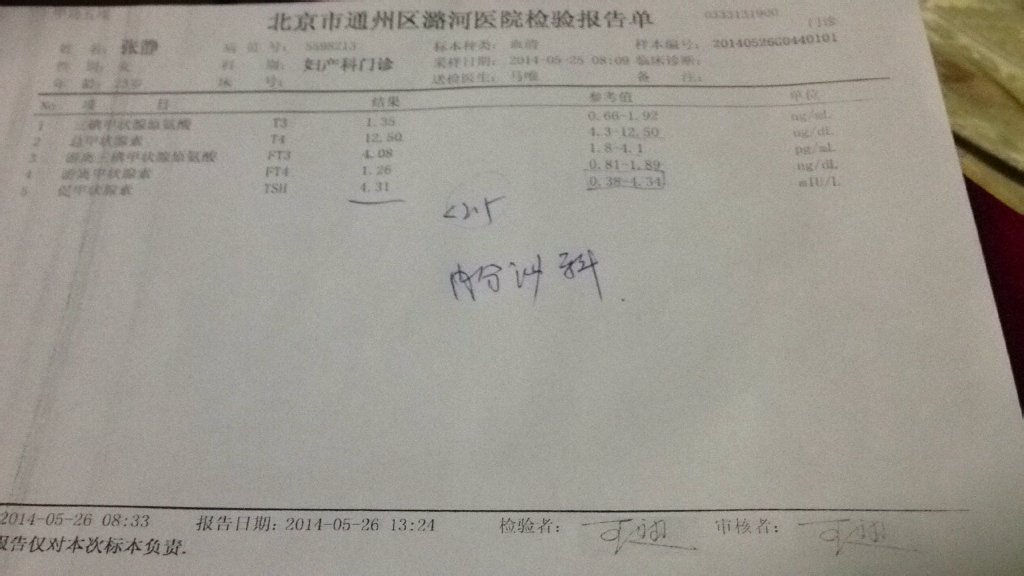 北京市通州区潞河医院检验报告单
0333131900
门诊
姓 名: 张静 病 历 号: 5598213 标本种类: 血清 样本编号: 20140526G0440101
性 别: 女 科 别: 妇产科门诊 采样日期: 2014-05-25 08:09 临床诊断:
年 龄: 25岁 床 号: 送检医生: 马唯 备 注:
No. 项 目 结果 参考值 单位
1 三碘甲状腺原氨酸 T3 1.35 0.66-1.92 ng/mL
2 总甲状腺素 T4 12.50 4.3-12.50 ug/dL
3 游离三碘甲状腺原氨酸 FT3 4.08 1.8-4.1 pg/mL
4 游离甲状腺素 FT4 1.26 0.81-1.89 ng/dL
5 促甲状腺素 TSH 4.31 0.38-4.34 mIU/L
<2.5
内分泌科
2014-05-26 08:33 报告日期: 2014-05-26 13:24 检验者: 审核者:
报告仅对本次标本负责.